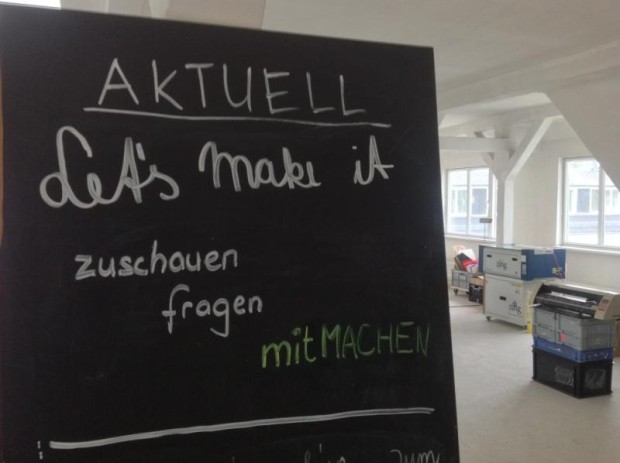 AKTUELL
Let's make it
zuschauen
fragen
mitMACHEN
zum